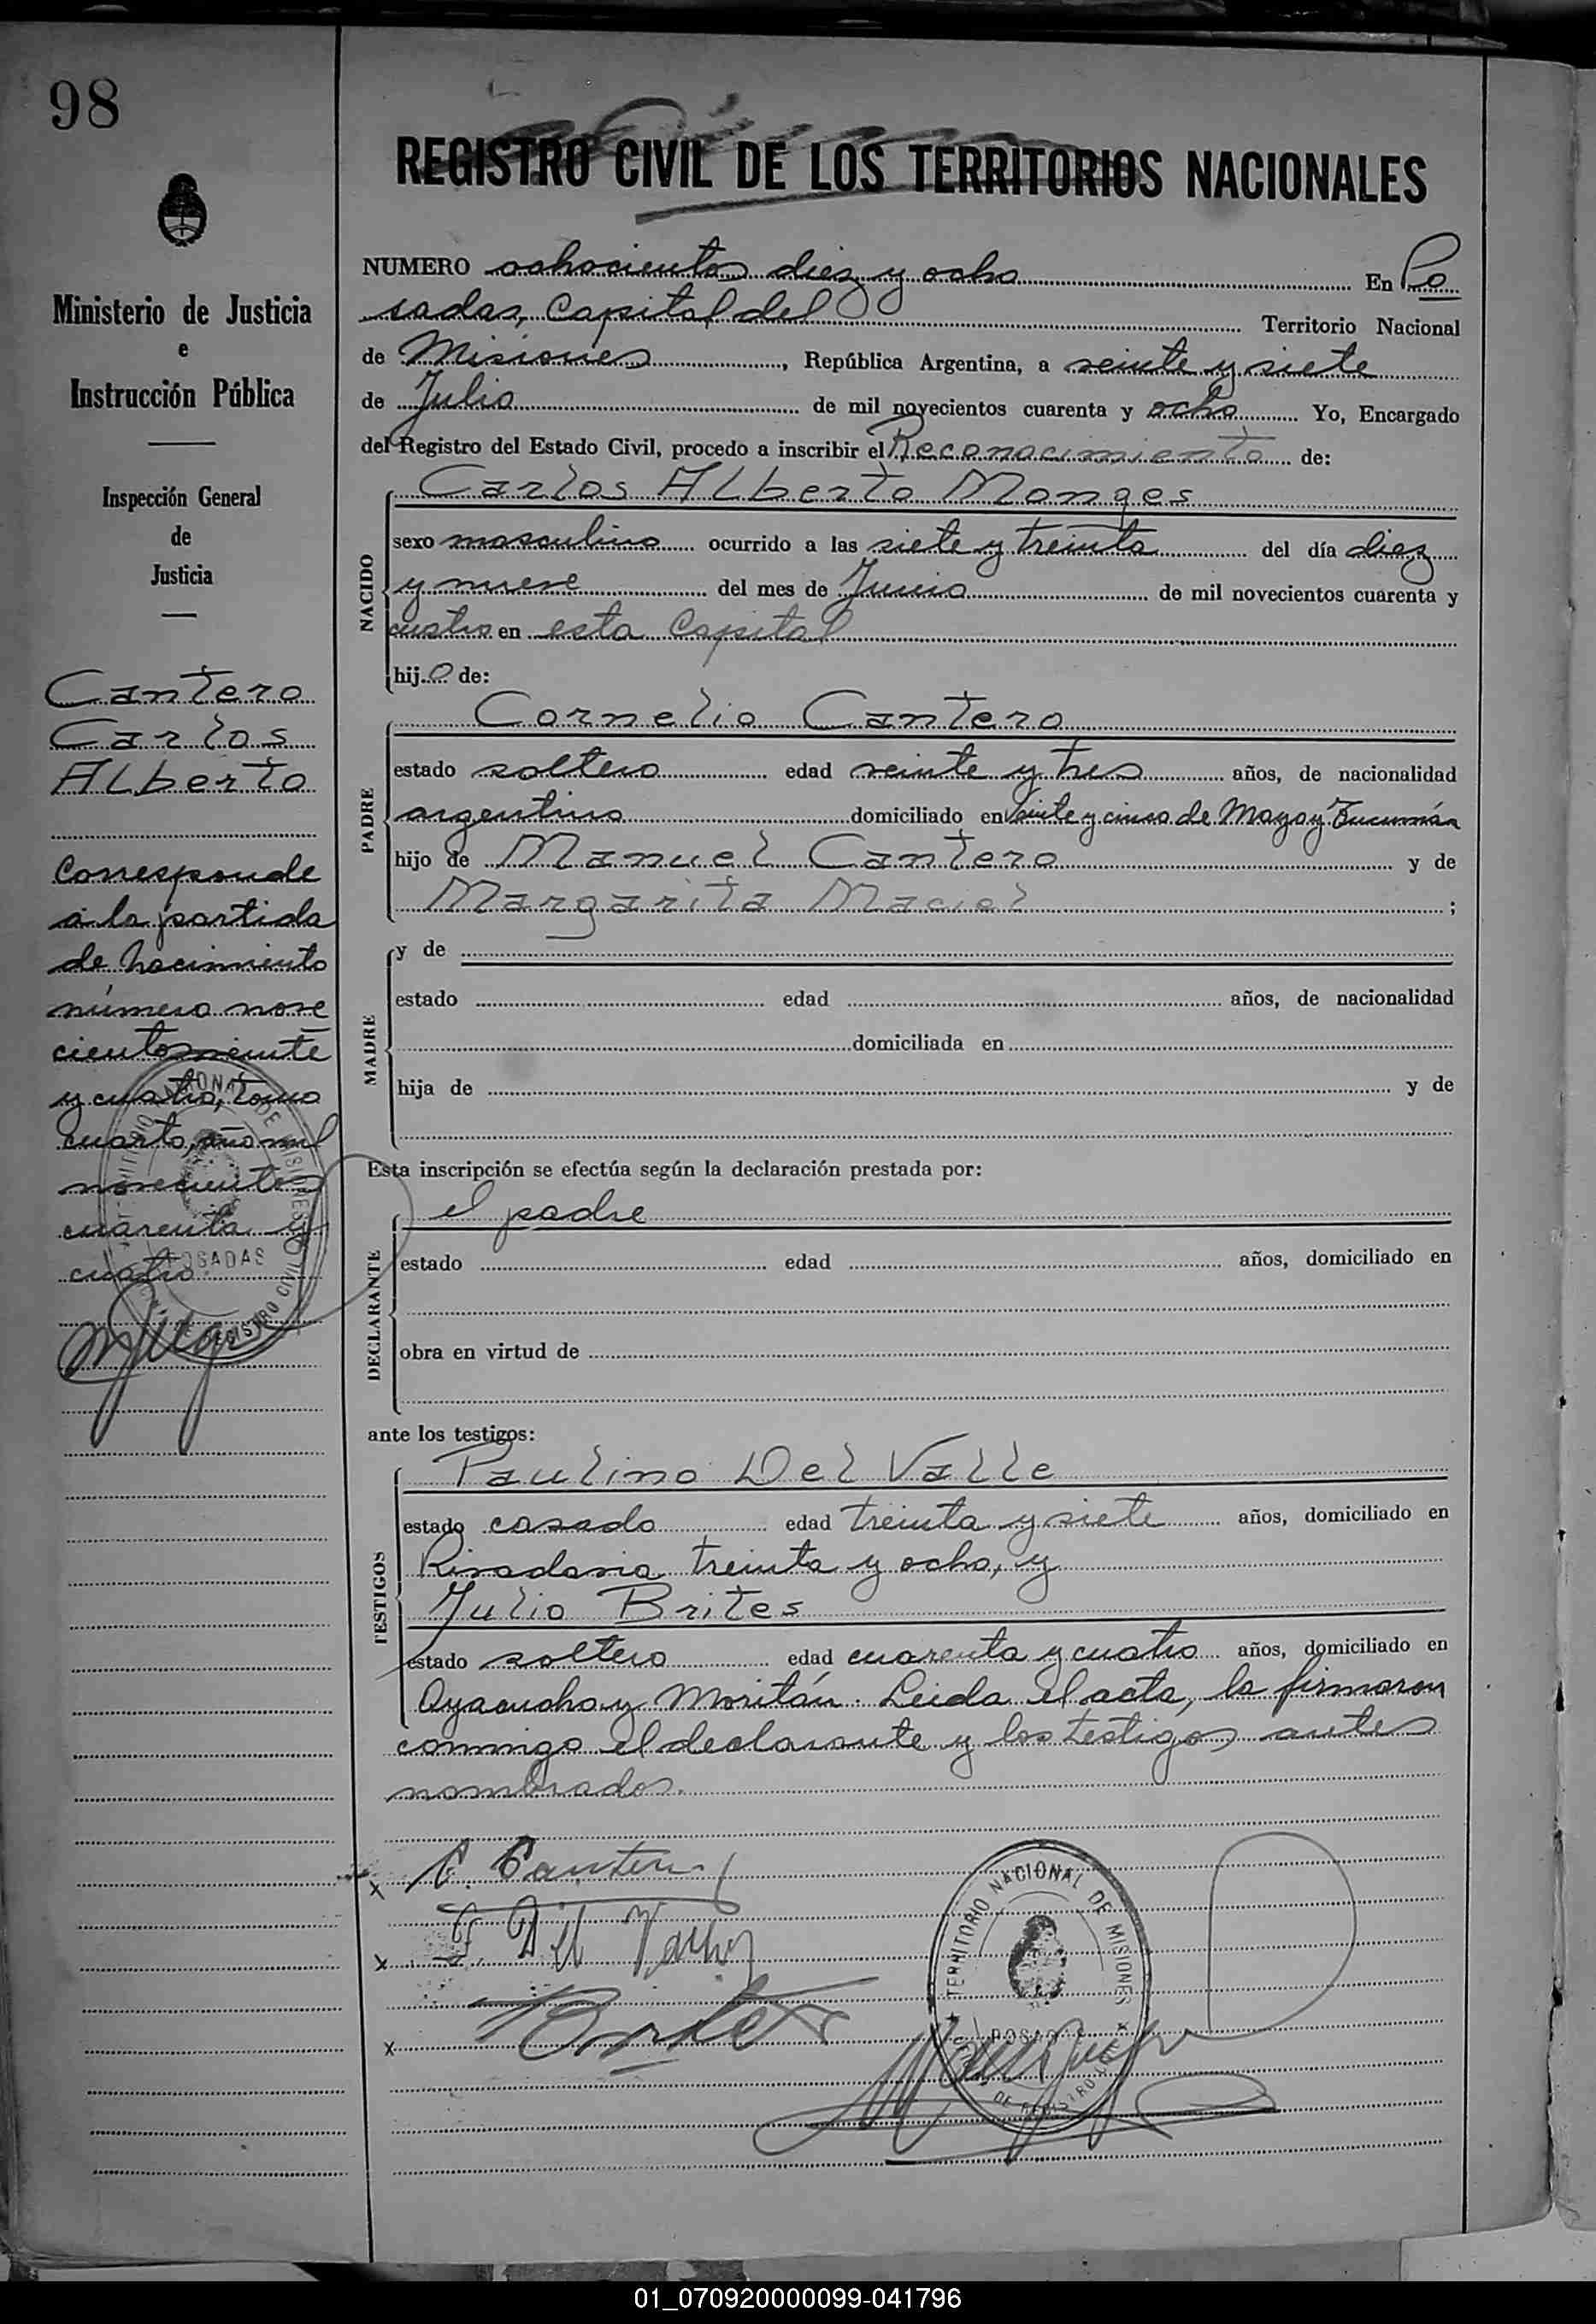 98
REGISTRO CIVIL DE LOS TERRITORIOS NACIONALES
Ministerio de Justicia
e
Instrucción Pública
Inspección General
de
Justicia
Cantero
Carlos
Alberto
Corresponde
a la partida
de nacimiento
número nove
cientos veinte
y cuatro, tomo
cuarto, año mil
novecientos
cuarenta y
cuatro.
NUMERO ochocientos diez y ocho En Po
sadas, Capital del Territorio Nacional
de Misiones, República Argentina, a veinte y siete
de Julio de mil novecientos cuarenta y ocho Yo, Encargado
del Registro del Estado Civil, procedo a inscribir el Reconocimiento de:
NACIDO
Carlos Alberto Monges
sexo masculino ocurrido a las siete y treinta del día diez
y nueve del mes de Junio de mil novecientos cuarenta y
cuatro en esta Capital
hijo de:
PADRE
Cornelio Cantero
estado soltero edad veinte y tres años, de nacionalidad
argentino domiciliado en Veinte y cinco de Mayo y Tucumán
hijo de Manuel Cantero y de
Margarita Maciel ;
MADRE
y de
estado edad años, de nacionalidad
domiciliada en
hija de y de
Esta inscripción se efectúa según la declaración prestada por:
DECLARANTE
el padre
estado edad años, domiciliado en
obra en virtud de
ante los testigos:
TESTIGOS
Paulino Del Valle
estado casado edad treinta y siete años, domiciliado en
Rivadavia treinta y ocho, y
Julio Brites
estado soltero edad cuarenta y cuatro años, domiciliado en
Ayacucho y Moritán. Leída el acta, la firmaron
conmigo el declarante y los testigos antes
nombrados.
x C. Cantero
x P. Del Valle
x Brites
TERRITORIO NACIONAL DE MISIONES
POSADAS
DE REGISTRO CIVIL
01_070920000099-041796